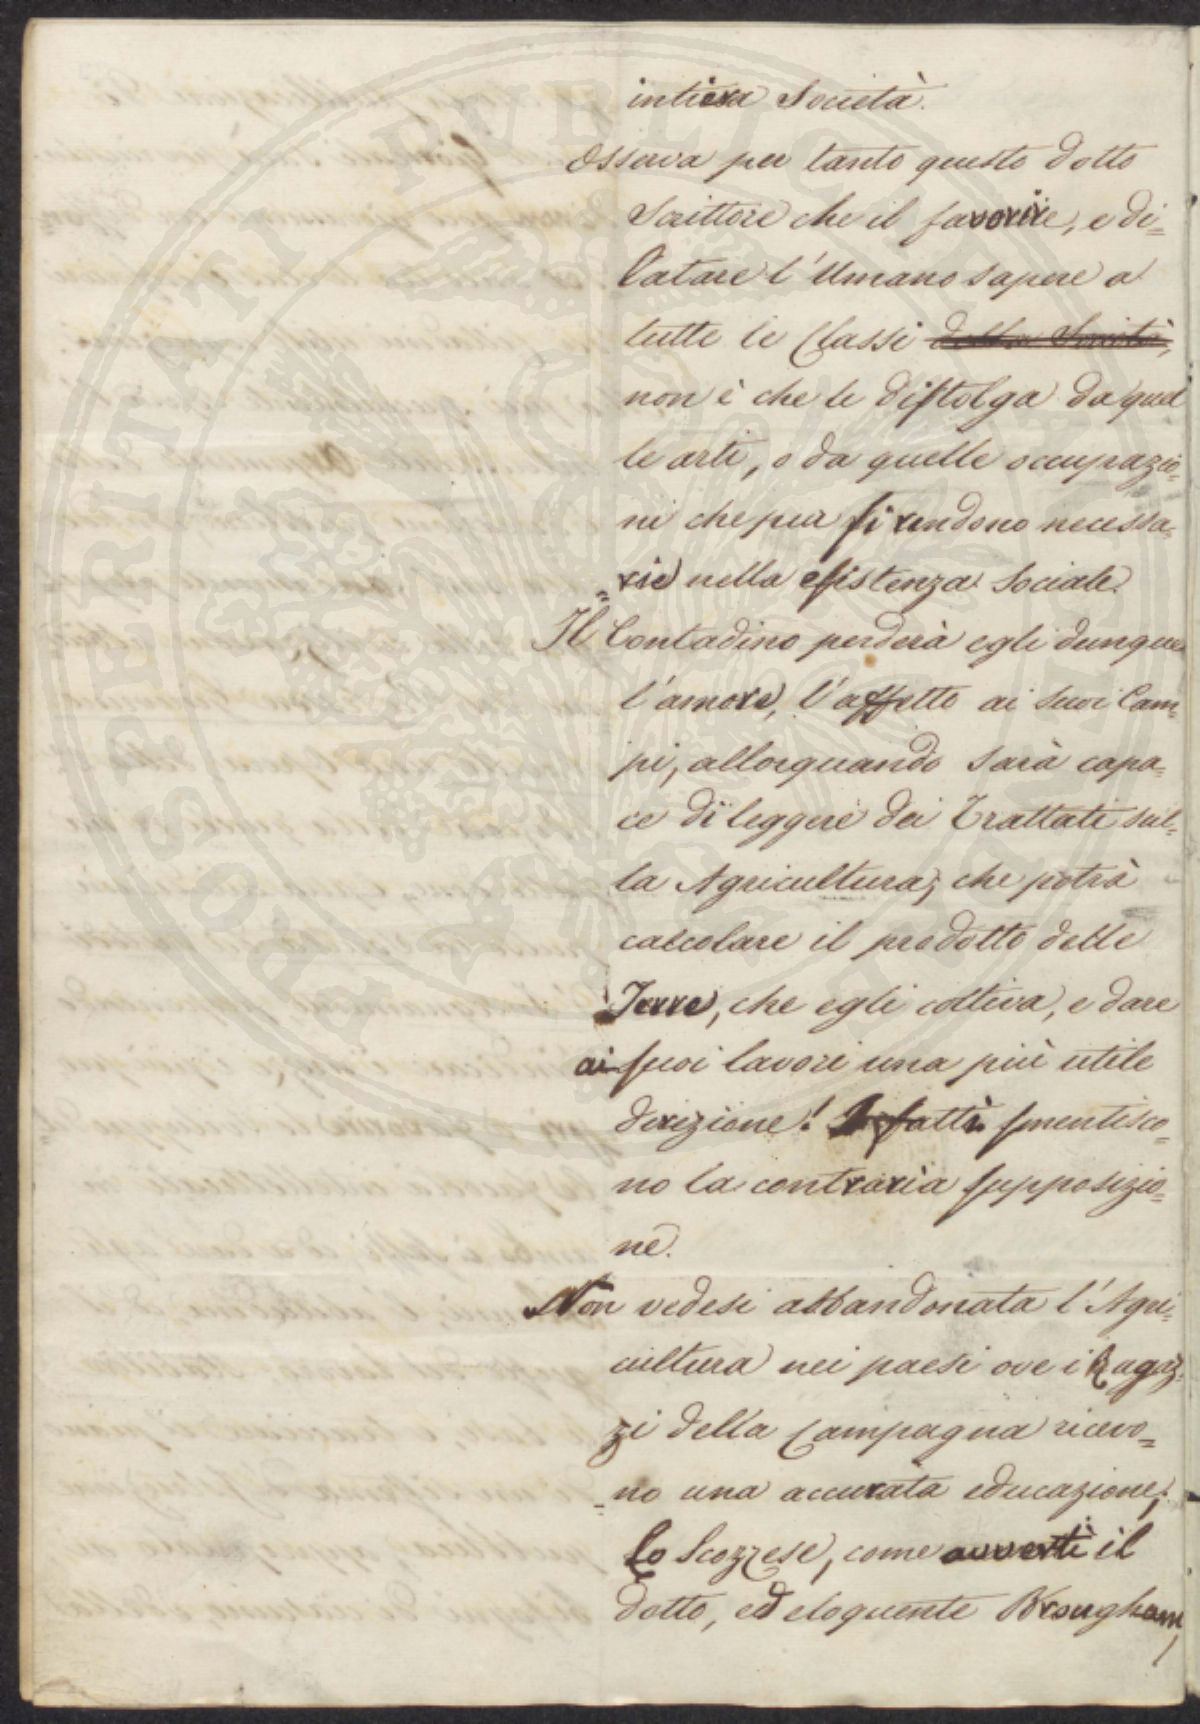 intiera Società.
Osserva per tanto questo dotto
Scrittore che il favorire, e di=
latare l'Umano sapere a
tutte le Classi della Società,
non è che le distolga da quel
le arti, o da quelle occupazio=
ni che pur si rendono necessa=
=rie nella esistenza Sociale.
Il Contadino perderà egli dunque
l'amore, l'affetto ai suoi Cam=
pi, allorquando sarà capa=
ce di leggere dei Trattati sul=
la Agricultura; che potrà
calcolare il prodotto delle
Terre, che egli coltiva, e dare
ai suoi lavori una più utile
direzione! I fatti smentisco=
no la contraria supposizio=
ne.
Non vedesi abbandonata l'Agri=
cultura nei paesi ove i Ragaz=
zi della Campagna ricevo=
=no una accurata educazione;
Lo Scozzese, come avverti il
dotto, ed eloquente Brougham,
PROSPERITATI PUBLICAE